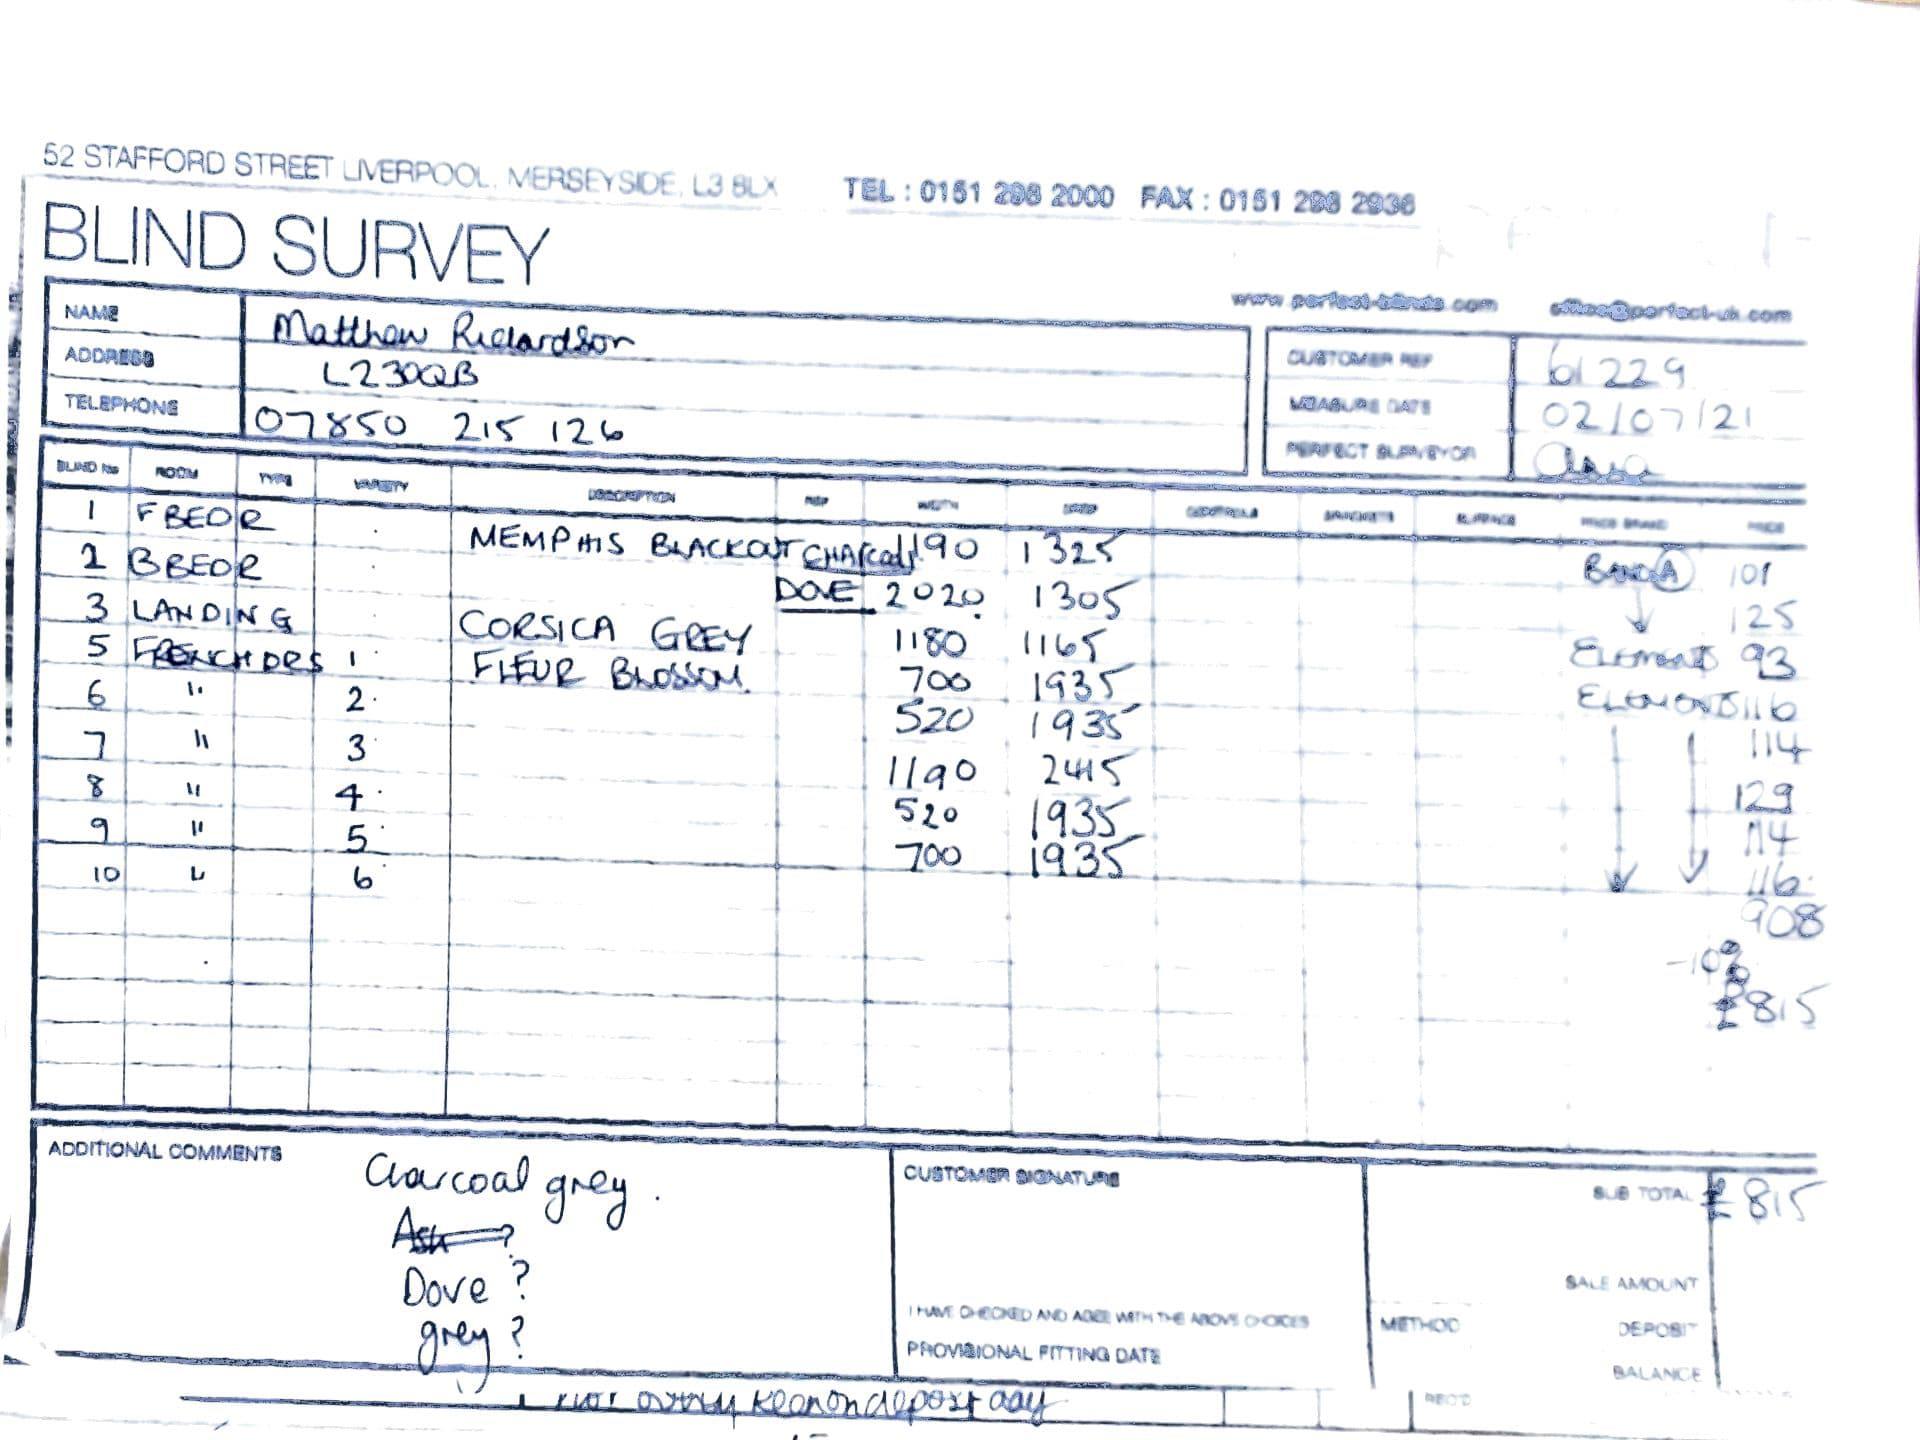 52 STAFFORD STREET LIVERPOOL, MERSEYSIDE, L3 8LX TEL : 0151 298 2000 FAX : 0151 298 2936
BLIND SURVEY
www.perfect-blinds.com office@perfect-uk.com
NAME Matthew Richardson
ADDRESS L230QB
TELEPHONE 07850 215 126
CUSTOMER REF 61229
MEASURE DATE 02/07/21
PERFECT SURVEYOR
BLIND No ROOM TYPE VARIETY DESCRIPTION REF WIDTH DROP CONTROLS BRACKETS PRICE BAND PRICE
1 F BEDR MEMPHIS BLACKOUT CHARCOAL 1190 1325 BAND A 101
2 B BEDR DOVE 2020 1305 125
3 LANDING CORSICA GREY 1180 1165 ELEMENTS 93
5 FRENCH DRS 1 FLEUR BLOSSOM. 700 1935 ELEMENTS 116
6 " 2 520 1935 114
7 " 3 1190 2415 129
8 " 4 520 1935 114
9 " 5 700 1935 116
10 " 6
908
-10%
£815
ADDITIONAL COMMENTS
Charcoal grey.
Ash ?
Dove ?
grey ?
CUSTOMER SIGNATURE
I HAVE CHECKED AND AGREE WITH THE ABOVE CHOICES
PROVISIONAL FITTING DATE
SUB TOTAL £815
SALE AMOUNT
METHOD DEPOSIT
BALANCE
REC'D